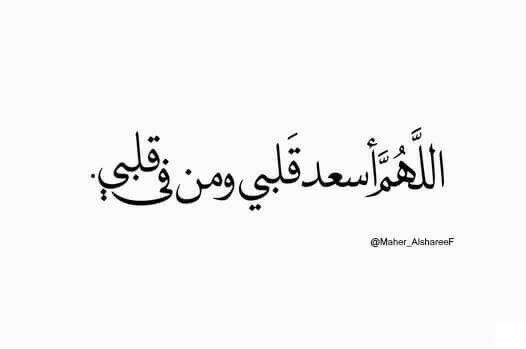 اللَّهُمَّ أسعد قَلبي ومن في قلبي.
@Maher_AlshareeF